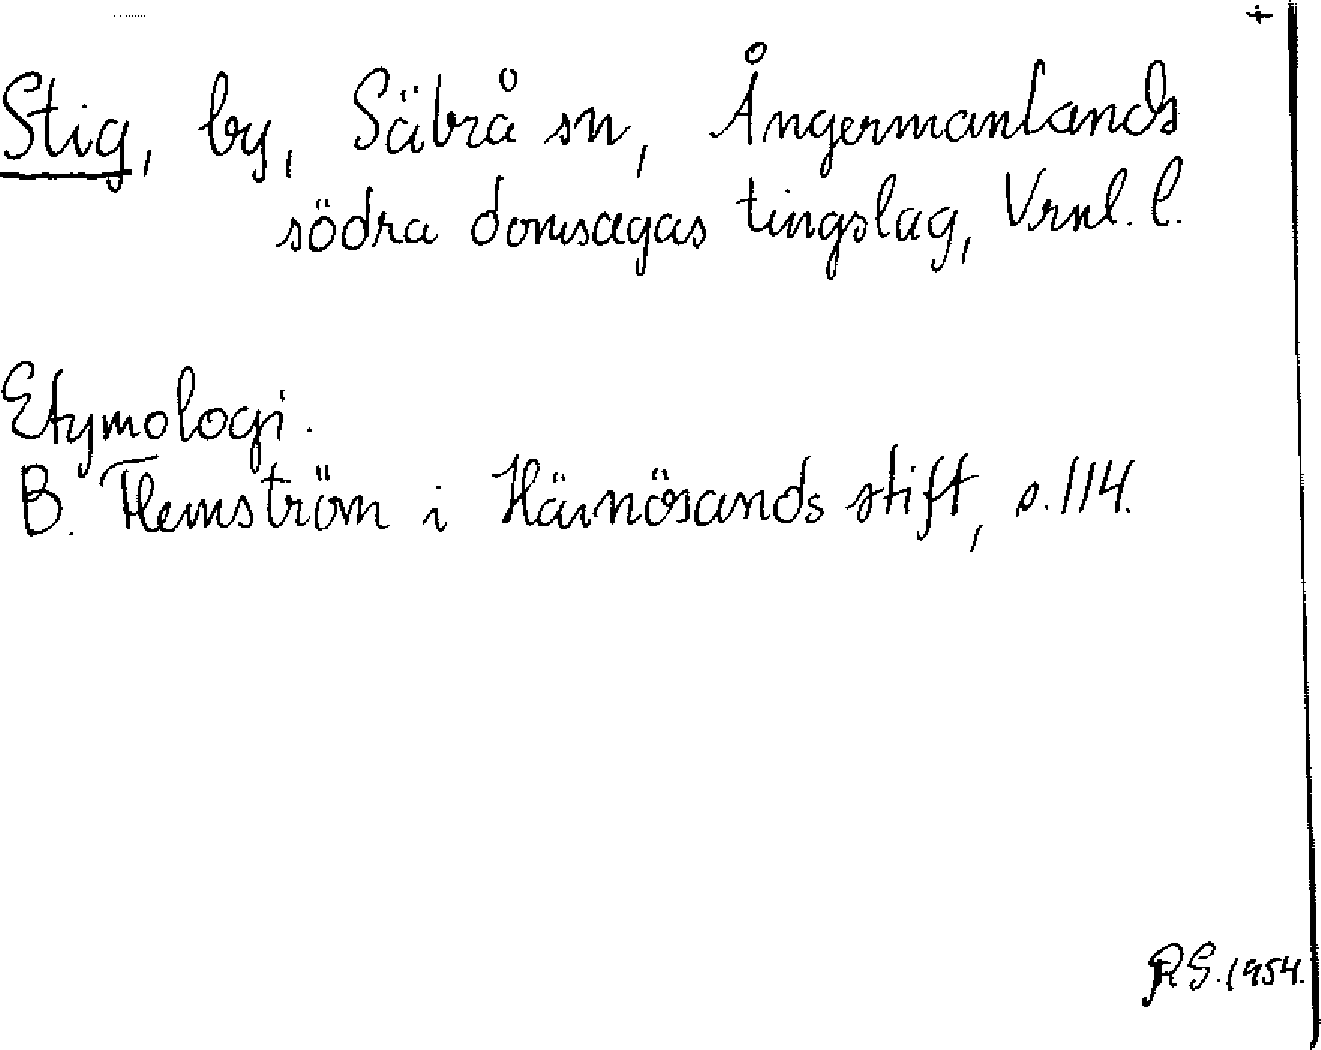 Stig, by, Säbrå sn, Ångermanlands
södra domsagas tingslag, Vrnl. l.
Etymologi.
B. Flemström i Härnösands stift, s. 114.
R G. 1954.